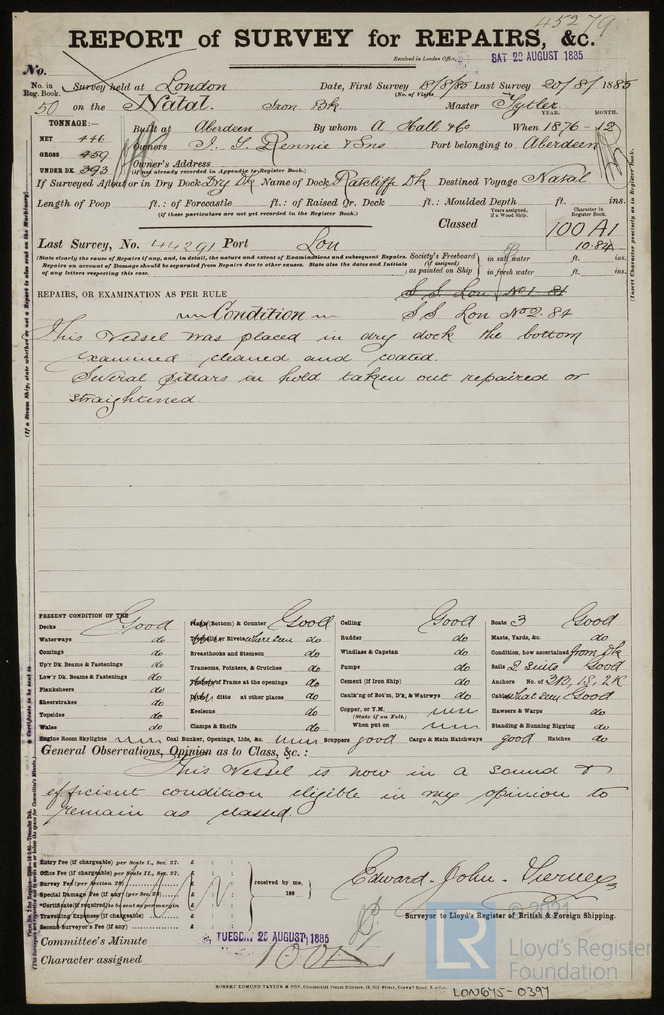 45279
REPORT of SURVEY for REPAIRS, &c.
Received in London Office, SAT 22 AUGUST 1885
No.
No. in Reg. Book. Survey held at London Date, First Survey 18/8/85 Last Survey 20/8/1885
(No. of Visits
50 on the Natal. Iron Bk. Master Tytler
TONNAGE:— YEAR. MONTH.
NET 446 Built at Aberdeen By whom A Hall & Co When 1876-12
GROSS 459 Owners J. T. Rennie & Sns Port belonging to Aberdeen
UNDER DK. 393 Owner's Address
(if not already recorded in Appendix to Register Book.)
If Surveyed Afloat or in Dry Dock Dry Dk Name of Dock Ratcliff Dk Destined Voyage Natal
Length of Poop ft.: of Forecastle ft.: of Raised Qr. Deck ft.: Moulded Depth ft. ins.
(if these particulars are not yet recorded in the Register Book.)
Years assigned, if a Wood Ship. Character in Register Book.
Classed 100 A1
10.84
Last Survey, No. 44291 Port Lon
(State clearly the cause of Repairs if any, and, in detail, the nature and extent of Examinations and subsequent Repairs.
Repairs on account of Damage should be separated from Repairs due to other causes. State also the dates and Initials
of any letters respecting this case.
Society's Freeboard (if assigned) as painted on Ship
in salt water ft. ins.
in fresh water ft. ins.
REPAIRS, OR EXAMINATION AS PER RULE S S Lon No 1- 81
Condition S S Lon No 2- 84
This Vessel was placed in dry dock the bottom
examined cleaned and coated.
Several pillars in hold taken out repaired or
straightened
PRESENT CONDITION OF THE
Decks Good
Waterways do
Comings do
Up'r Dk. Beams & Fastenings do
Low'r Dk. Beams & Fastenings do
Planksheers do
Sheerstrakes do
Topsides do
Wales do
Engine Room Skylights
(Bottom) & Counter Good
or Rivets where seen do
Breasthooks and Stemson do
Transoms, Pointers, & Crutches do
of Frame at the openings do
ditto at other places do
Keelsons do
Clamps & Shelfs do
Coal Bunker, Openings, Lids, &c.
Ceiling Good
Rudder do
Windlass & Capstan do
Pumps do
Cement (if Iron Ship) do
Caulk'ng of Bot'm, D'k, & Watrwys do
Copper, or Y.M.
(State if on Felt.)
When put on
Scuppers good Cargo & Main Hatchways good Hatches do
Boats 3 Good
Masts, Yards, &c. do
Condition, how ascertained from Dk
Sails 2 Suits Good
Anchors No. of 3B, 1S, 2K
Cables what seen Good
Hawsers & Warps do
Standing & Running Rigging do
General Observations, Opinion as to Class, &c.:
This Vessel is now in a sound &
efficient condition eligible in my opinion to
remain as classed.
Entry Fee (if chargeable) per Scale I., Sec. 27. £ : :
Office Fee (if chargeable) per Scale II., Sec. 27. £ : :
Survey Fee (per Section 28) £ : :
Special Damage Fee (if any) (per Sec. 28) £ : :
*Certificate (if required) to be sent as per margin £ : :
Travelling Expenses (if chargeable) £ : :
Second Surveyor's Fee (if any) £ : :
received by me,
188
Edward John
Surveyor to Lloyd's Register of British & Foreign Shipping.
Committee's Minute TUESDAY AUGUST, 1885
Character assigned 100A1
ROBERT EDMUND TAYLOR & SON, Commercial Steam Printers, 19, Old Street, Goswell Road, London.
LON675-0397
(Insert Character precisely as in Register Book.)
(If a Steam Ship, state whether or not a Report is also sent on the Machinery).
© 2021
LR
Lloyd's Register
Foundation